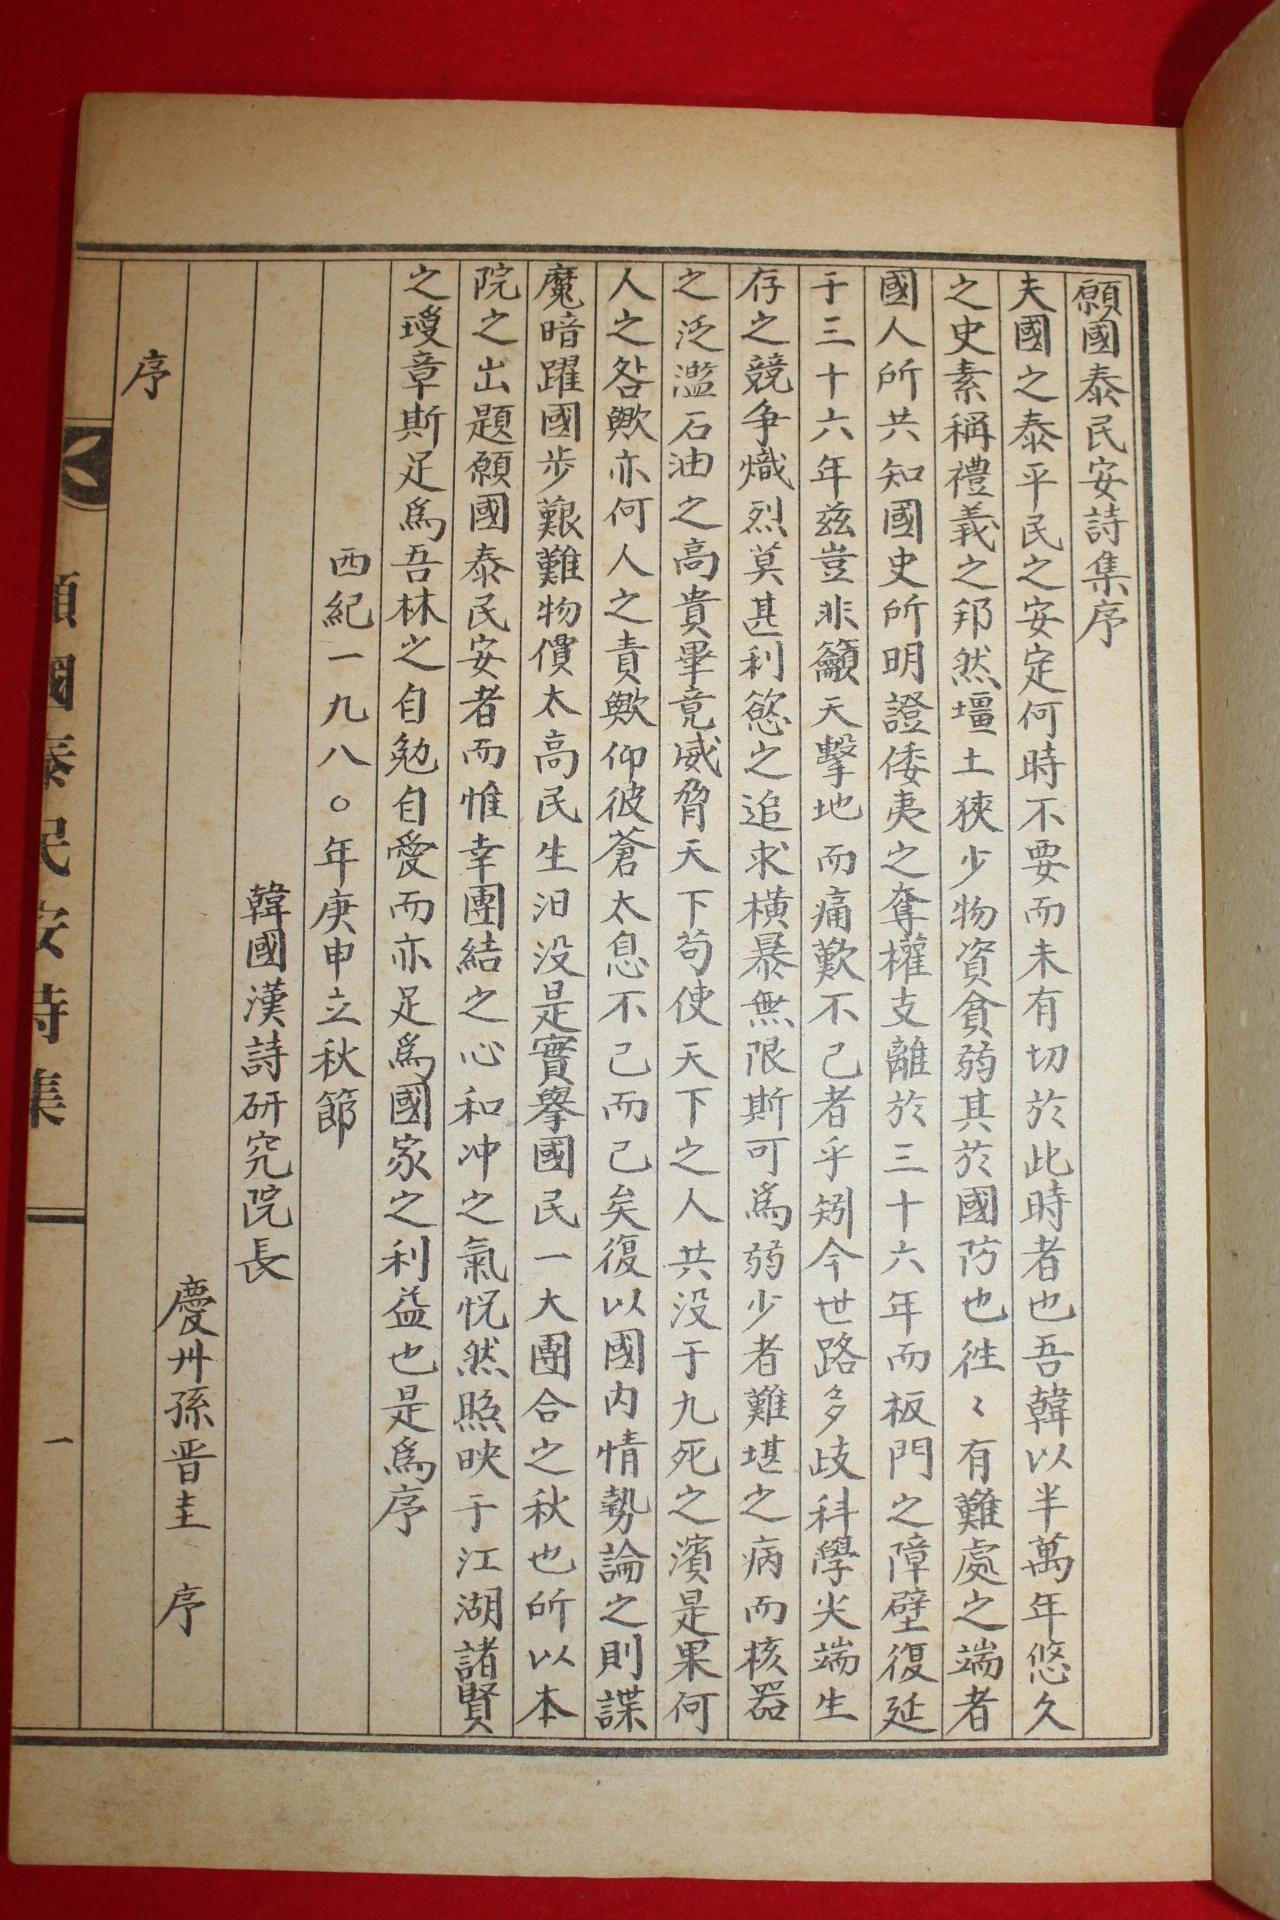 願國泰民安詩集序
夫國之泰平民之安定何時不要而未有切於此時者也吾韓以半萬年悠久
之史素稱禮義之邦然壃土狹少物資貧弱其於國防也徃〻有難處之端者
國人所共知國史所明證倭夷之奪權支離於三十六年而板門之障壁復延
于三十六年玆豈非籲天擊地而痛歎不已者乎矧今世路多歧科學尖端生
存之競爭熾烈莫甚利慾之追求橫暴無限斯可爲弱少者難堪之病而核器
之泛濫石油之高貴畢竟威脅天下苟使天下之人共没于九死之濱是果何
人之咎歟亦何人之責歟仰彼蒼太息不已而已矣復以國內情勢論之則諜
魔暗躍國步艱難物價太高民生汩没是實擧國民一大團合之秋也所以本
院之出題願國泰民安者而惟幸團結之心和冲之氣怳然照映于江湖諸賢
之瓊章斯足爲吾林之自勉自愛而亦足爲國家之利益也是爲序
西紀一九八〇年庚申立秋節
韓國漢詩研究院長
慶州孫晋圭 序
序
願國泰民安詩集
一